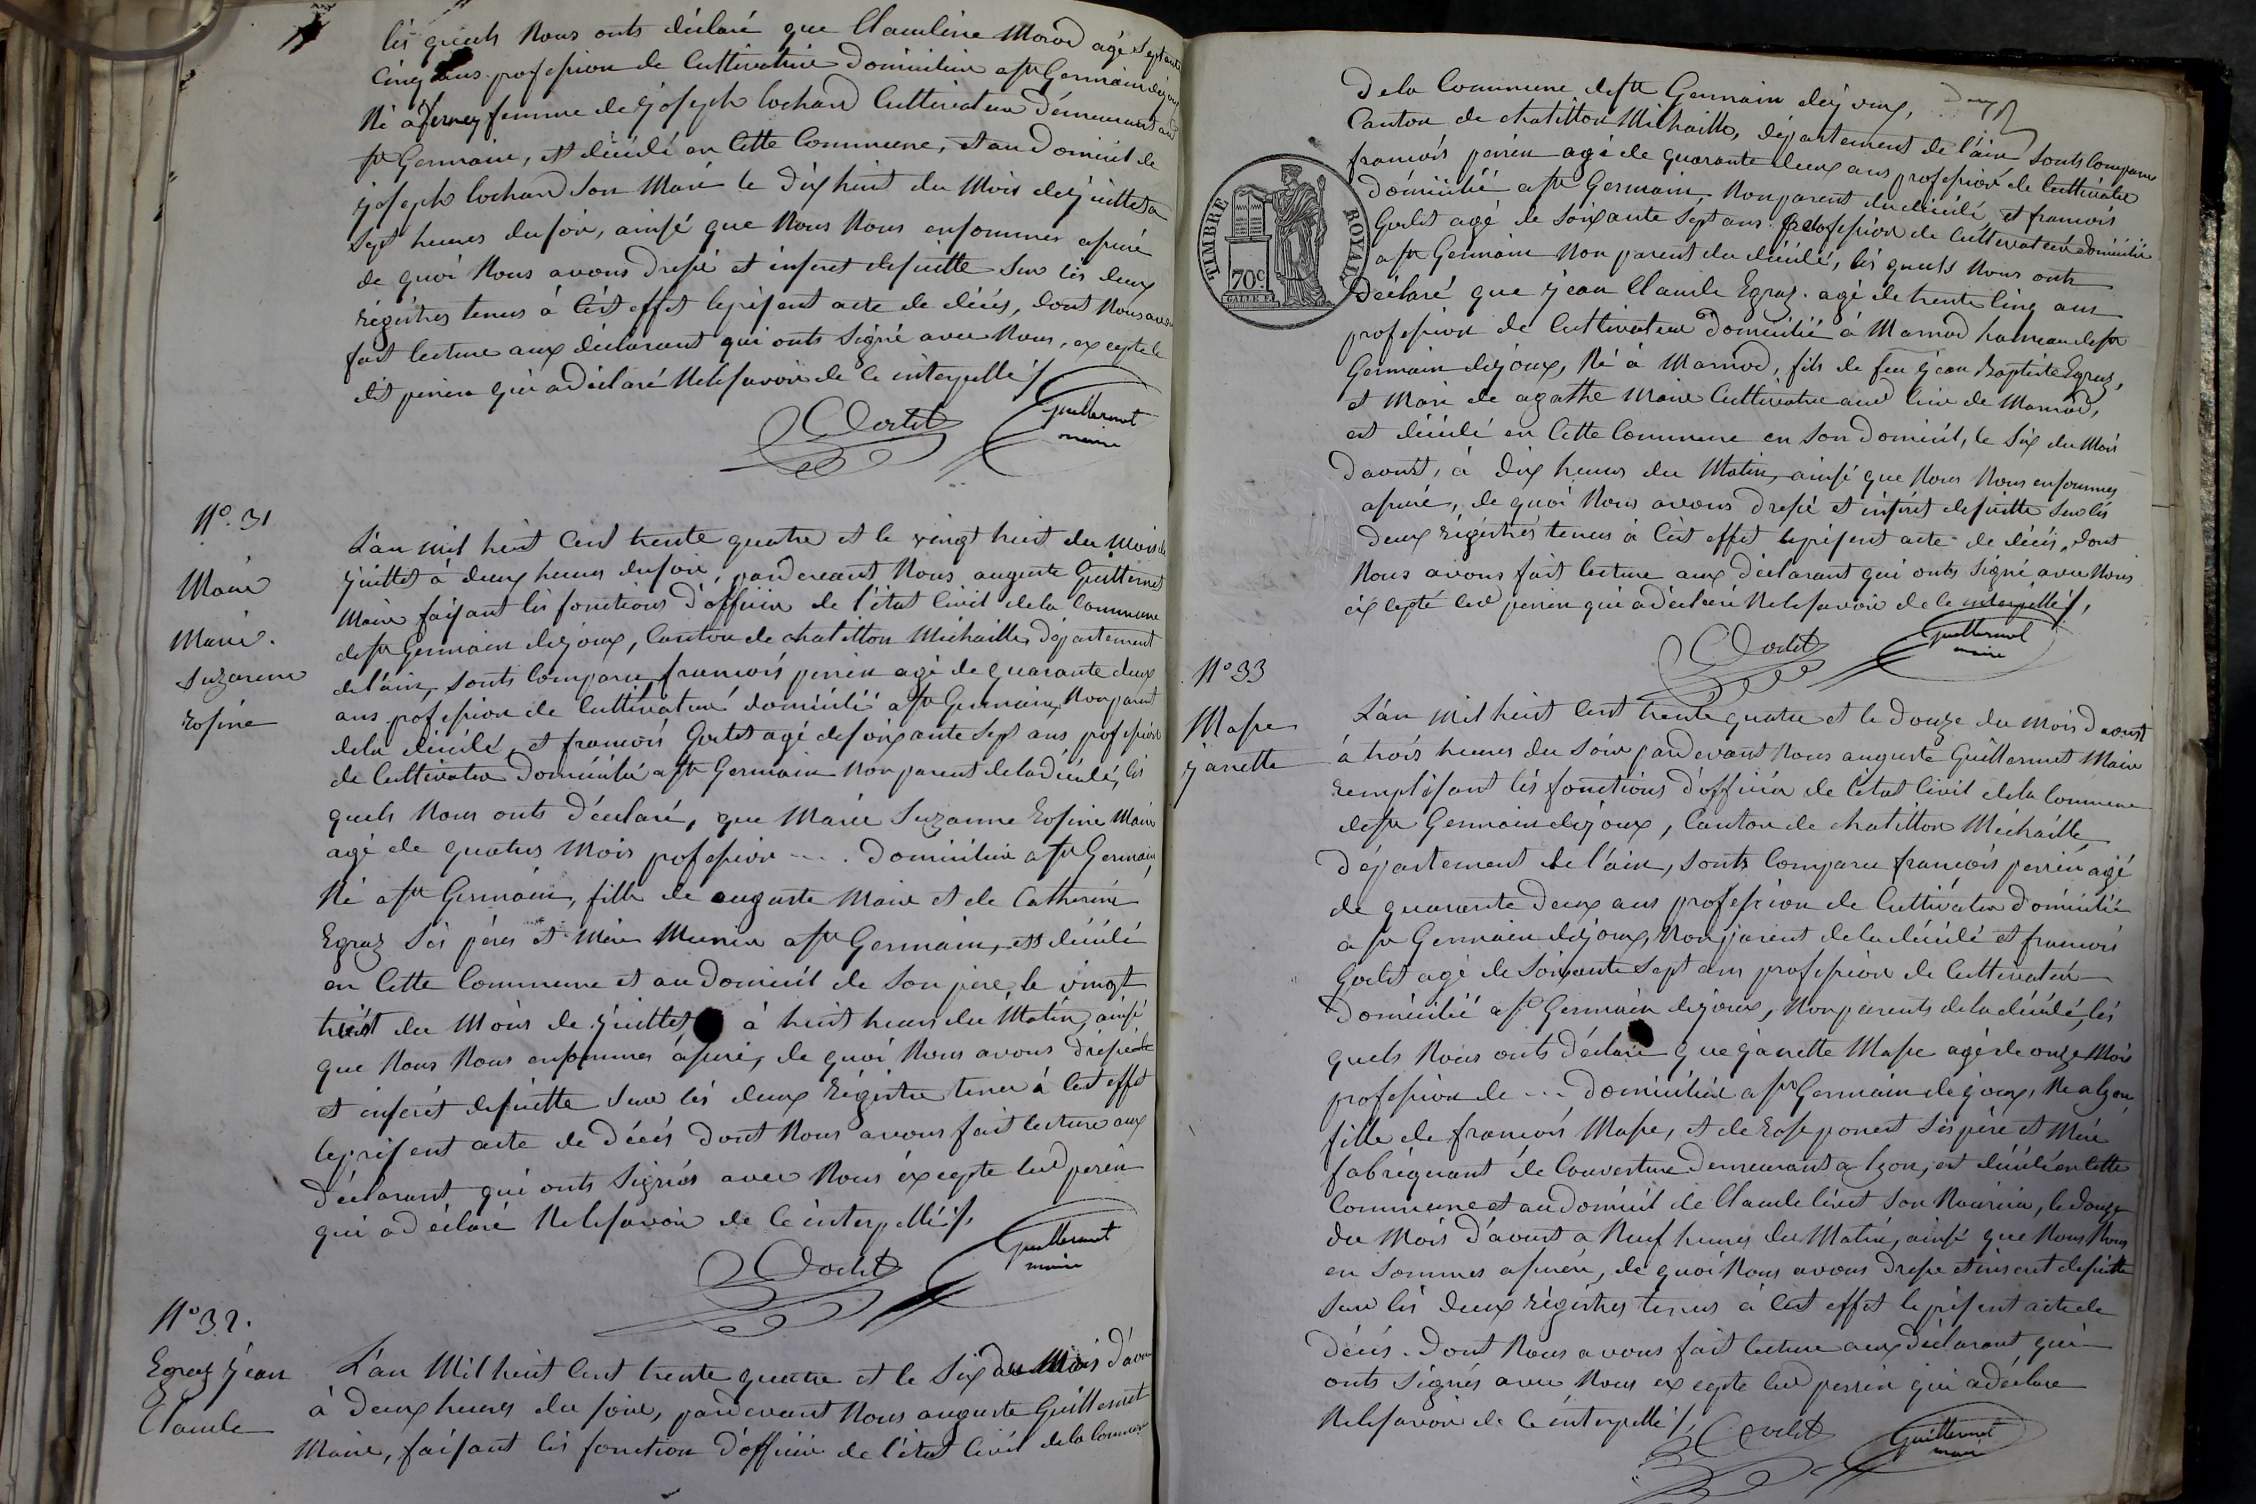 lès quels Nous onts déclaré que Claudine Morod agé Septante
Cinq ans profession de Cultivatrice Domiciliée a St Germain dejoux
Né à ferney femme de Joseph Cochard Cultivateur démeurant
St Germain, est décédé en Cette Commune, et au Domicil de
joseph Cochard Son Mari le dix huit du Mois de juillet a
Sept heures du soir, ainsé que Nous Nous ensommes assuré
de quoi Nous avons Dressé et inseret desuitte Sur lès deux
régistres tenus à Cèt effet leprésent acte de décès, dont Nous avons
fait lecture aux déclarant qui onts signé avec Nous, excepte le
dit perrin qui a déclaré Nelesavoir de ce interpellé
Godet
Guillermet
maire
No. 31
Maire
Marie
Suzanne
Rosine
L'an mil huit Cent trente quatre et le vingt huit du Mois de
juillet à deux heures dusoir, pardevant Nous auguste Guillermet
Maire faisant lès fonctions d'officier de l'état Civil dela Commune
deSt Germain dejoux, Canton de chatillon Michaille Département
del'ain, sonts Comparu francois perrin agé de quarante deux
ans profession de Cultivateur domicilié a St Germain Nonparent
dela décédé, et francois Godet agé desoixante Sept ans, profession
de Cultivateur Domicilié a St Germain Nonparent deladécédé, lès
quels Nous onts déclaré, que Marie Suzanne Rosine Maire
agé de quatres Mois profession ... Domiciliée a St Germain,
Né a St Germain, fille de auguste Maire et de Catherine
Egraz Sès pères et Mère Munier a St Germain, est décédé
en Cette Commune et au Domicil de Son père, le vingt
huist du Mois de juillet à huit heures du Matin, ainsé
que Nous Nous ensommes assuré, de quoi Nous avons dressé
et inserét desuitte Sur lès deux régistre tenu à Cèt effet
leprésent acte de Décès dont Nous avons fait lecture aux
déclarant qui onts signés avec Nous éxcepte led perrin
qui a déclaré Nelesavoir de ce interpellé
Godet
Guillermet
maire
No 32.
Egraz jean
Claude
L'an Mil huit Cent trente quatre et le Six du Mois d'avoust
à Deux heures du soir, pardevant Nous auguste Guillermet
Maire, faisant lès fonction d'officier de l'état Civil dela Commune
Dela Commune deSt Germain dejoux,
Canton de chatillon Michaille, département de l'ain sonts Comparu
francois perrin agé de quarante deux ans profession de Cultivateur
Domicilié a St Germain Nonparent du décédé, et francois
Godet agé de Soixante Sept ans profession de Cultivateur Domicilié
a St Germain Non parent du décédé, lès quels Nous onts
déclaré que jean Claude Egraz agé de trente Cinq ans
profession de Cultivateur Domicilié à Marnod hameau de St
Germain dejoux, Né à Marnod, fils de feu jean Baptiste Egraz,
et Mari de agathe Maire Cultivatrice aud lieu de Marnod,
est décédé en Cette Commune en Son Domicil, le Six du Mois
d'avoust, à dix heures du Matin, ainsé que Nous Nous ensommes
assuré, de quoi Nous avons Dressé et inserét desuitte Sur lès
deux régistrés tenus à Cèt effet leprésent acte de décès, dont
Nous avons fait lecture aux déclarant qui onts Signé avec Nous
éxcepté led perrin qui a déclaré Nelesavoir de ce interpellé,
Godet
Guillermet
maire
TIMBRE ROYAL
70c
No 33
Masse
janette
L'an Mil huit Cent trente quatre et le Douze du Mois d'avoust
à trois heures du Soir pardevant Nous auguste Guillermet Maire
remplisant lès fonctions d'officiér de l'état Civil dela Commune
deSt Germain dejoux, Canton de chatillon Michaille
Département de l'ain, sonts Comparu francois perrin agé
de quarante Deux ans profession de Cultivateur Domicilié
a St Germain dejoux, Nonparent dela décédé et francois
Godet agé de Soixante Sept ans profession de Cultivateur
Domicilié a St Germain dejoux, Nonparents dela décédé, lès
quels Nous onts déclaré que janette Masse agé de onze Mois
profession de ... Domiciliée a St Germain dejoux, Né a lyon
fille de francois Masse, et de Rose ponect Sès père et Mère
fabriquant de Couverture Demeurant a lyon, est décédé en Cette
Commune et au Domicil de Claude Son Nouricier, le Douze
du Mois d'avoust a Neuf heures du Matin, ainsé que Nous Nous
en Sommes assurén, de quoi Nous avons Dressé et inseret desuitte
Sur lès Deux régistrés tenus à Cèt effet le présent acte de
Décès. Dont Nous avons fait lecture aux Déclarant, qui
onts Signés avec Nous excepte led perrin qui a déclaré
Nelesavoir de ce interpellé,
Godet
Guillermet
maire